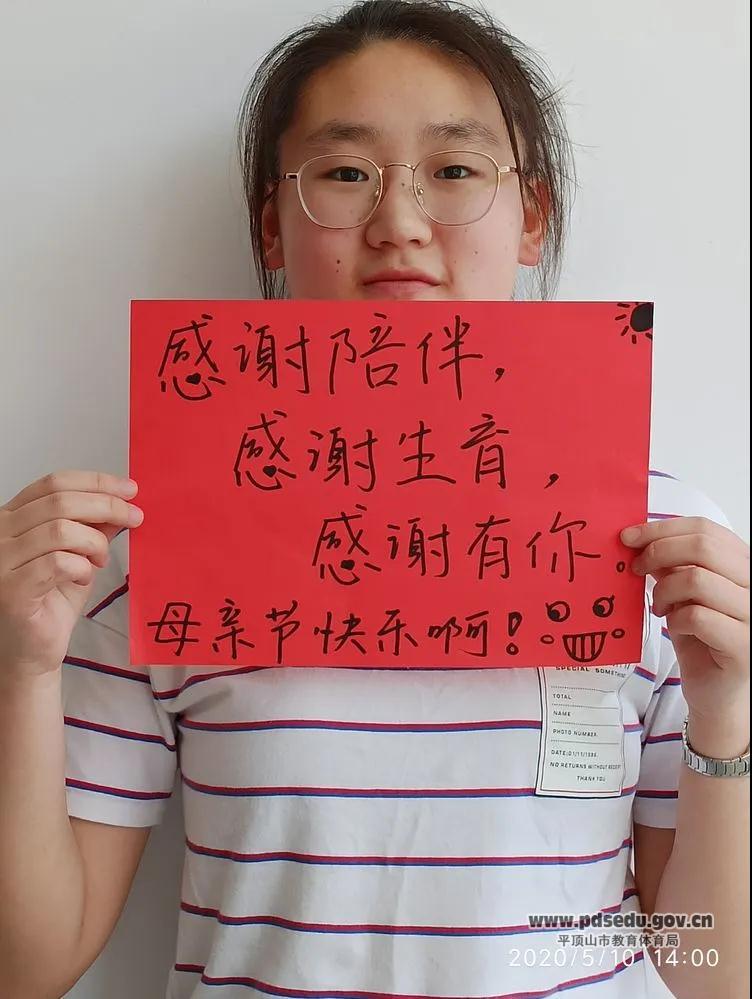 感谢陪伴,
感谢生育,
感谢有你。
母亲节快乐啊!
SPECIAL SOMETHING
TOTAL
NAME
PHOTO NUMBER.
NO RETURNS WITHOUT RECEIPT
THANK YOU
www.pdsedu.gov.cn
平顶山市教育体育局
2020/5/10 14:00